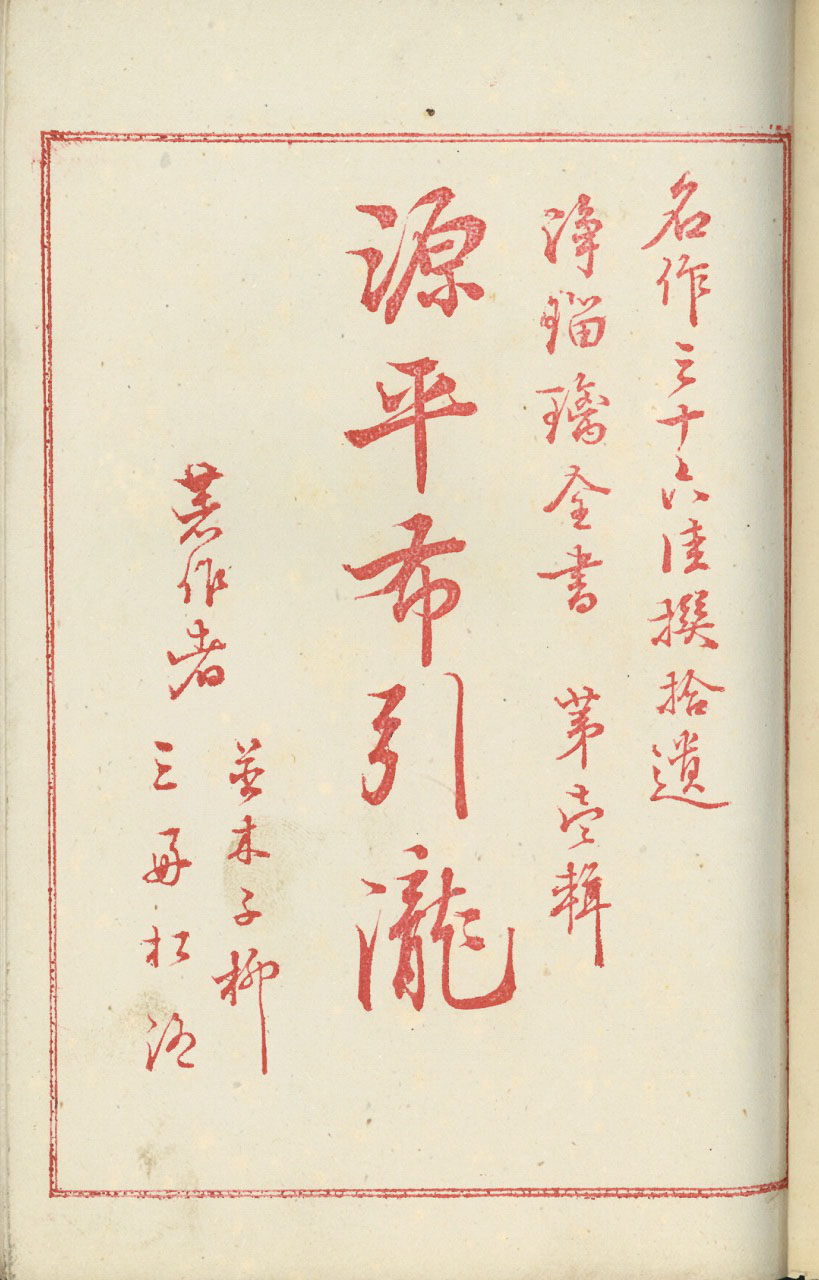 名作三十六佳撰拾遺
淨瑠璃全書　第壹輯
源平布引瀧
著作者
並木千柳
三好松洛